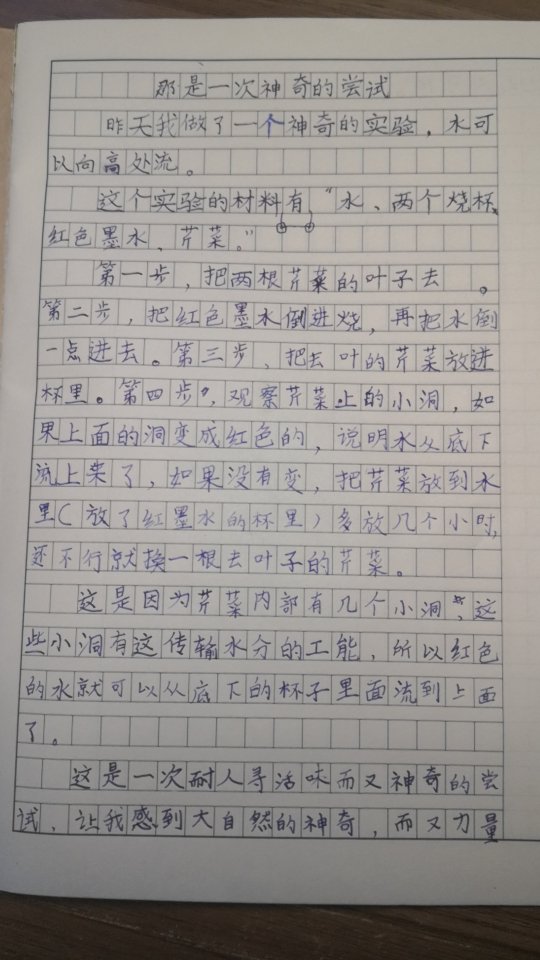 那是一次神奇的尝试
昨天我做了一个神奇的实验，水可
以向高处流。
这个实验的材料有“水、两个烧杯、
红色墨水、芹菜。”
第一步，把两根芹菜的叶子去　。
第二步，把红色墨水倒进烧，再把水倒
一点进去。第三步、把去叶的芹菜放进
杯里。第四步，观察芹菜上的小洞，如
果上面的洞变成红色的，说明水从底下
流上来了，如果没有变，把芹菜放到水
里（放了红墨水的杯里）多放几个小时，
还不行就换一根去叶子的芹菜。
这是因为芹菜内部有几个小洞，这
些小洞有这传输水分的工能，所以红色
的水就可以从底下的杯子里面流到上面
了。
这是一次耐人寻活味而又神奇的尝
试、让我感到大自然的神奇，而又力量